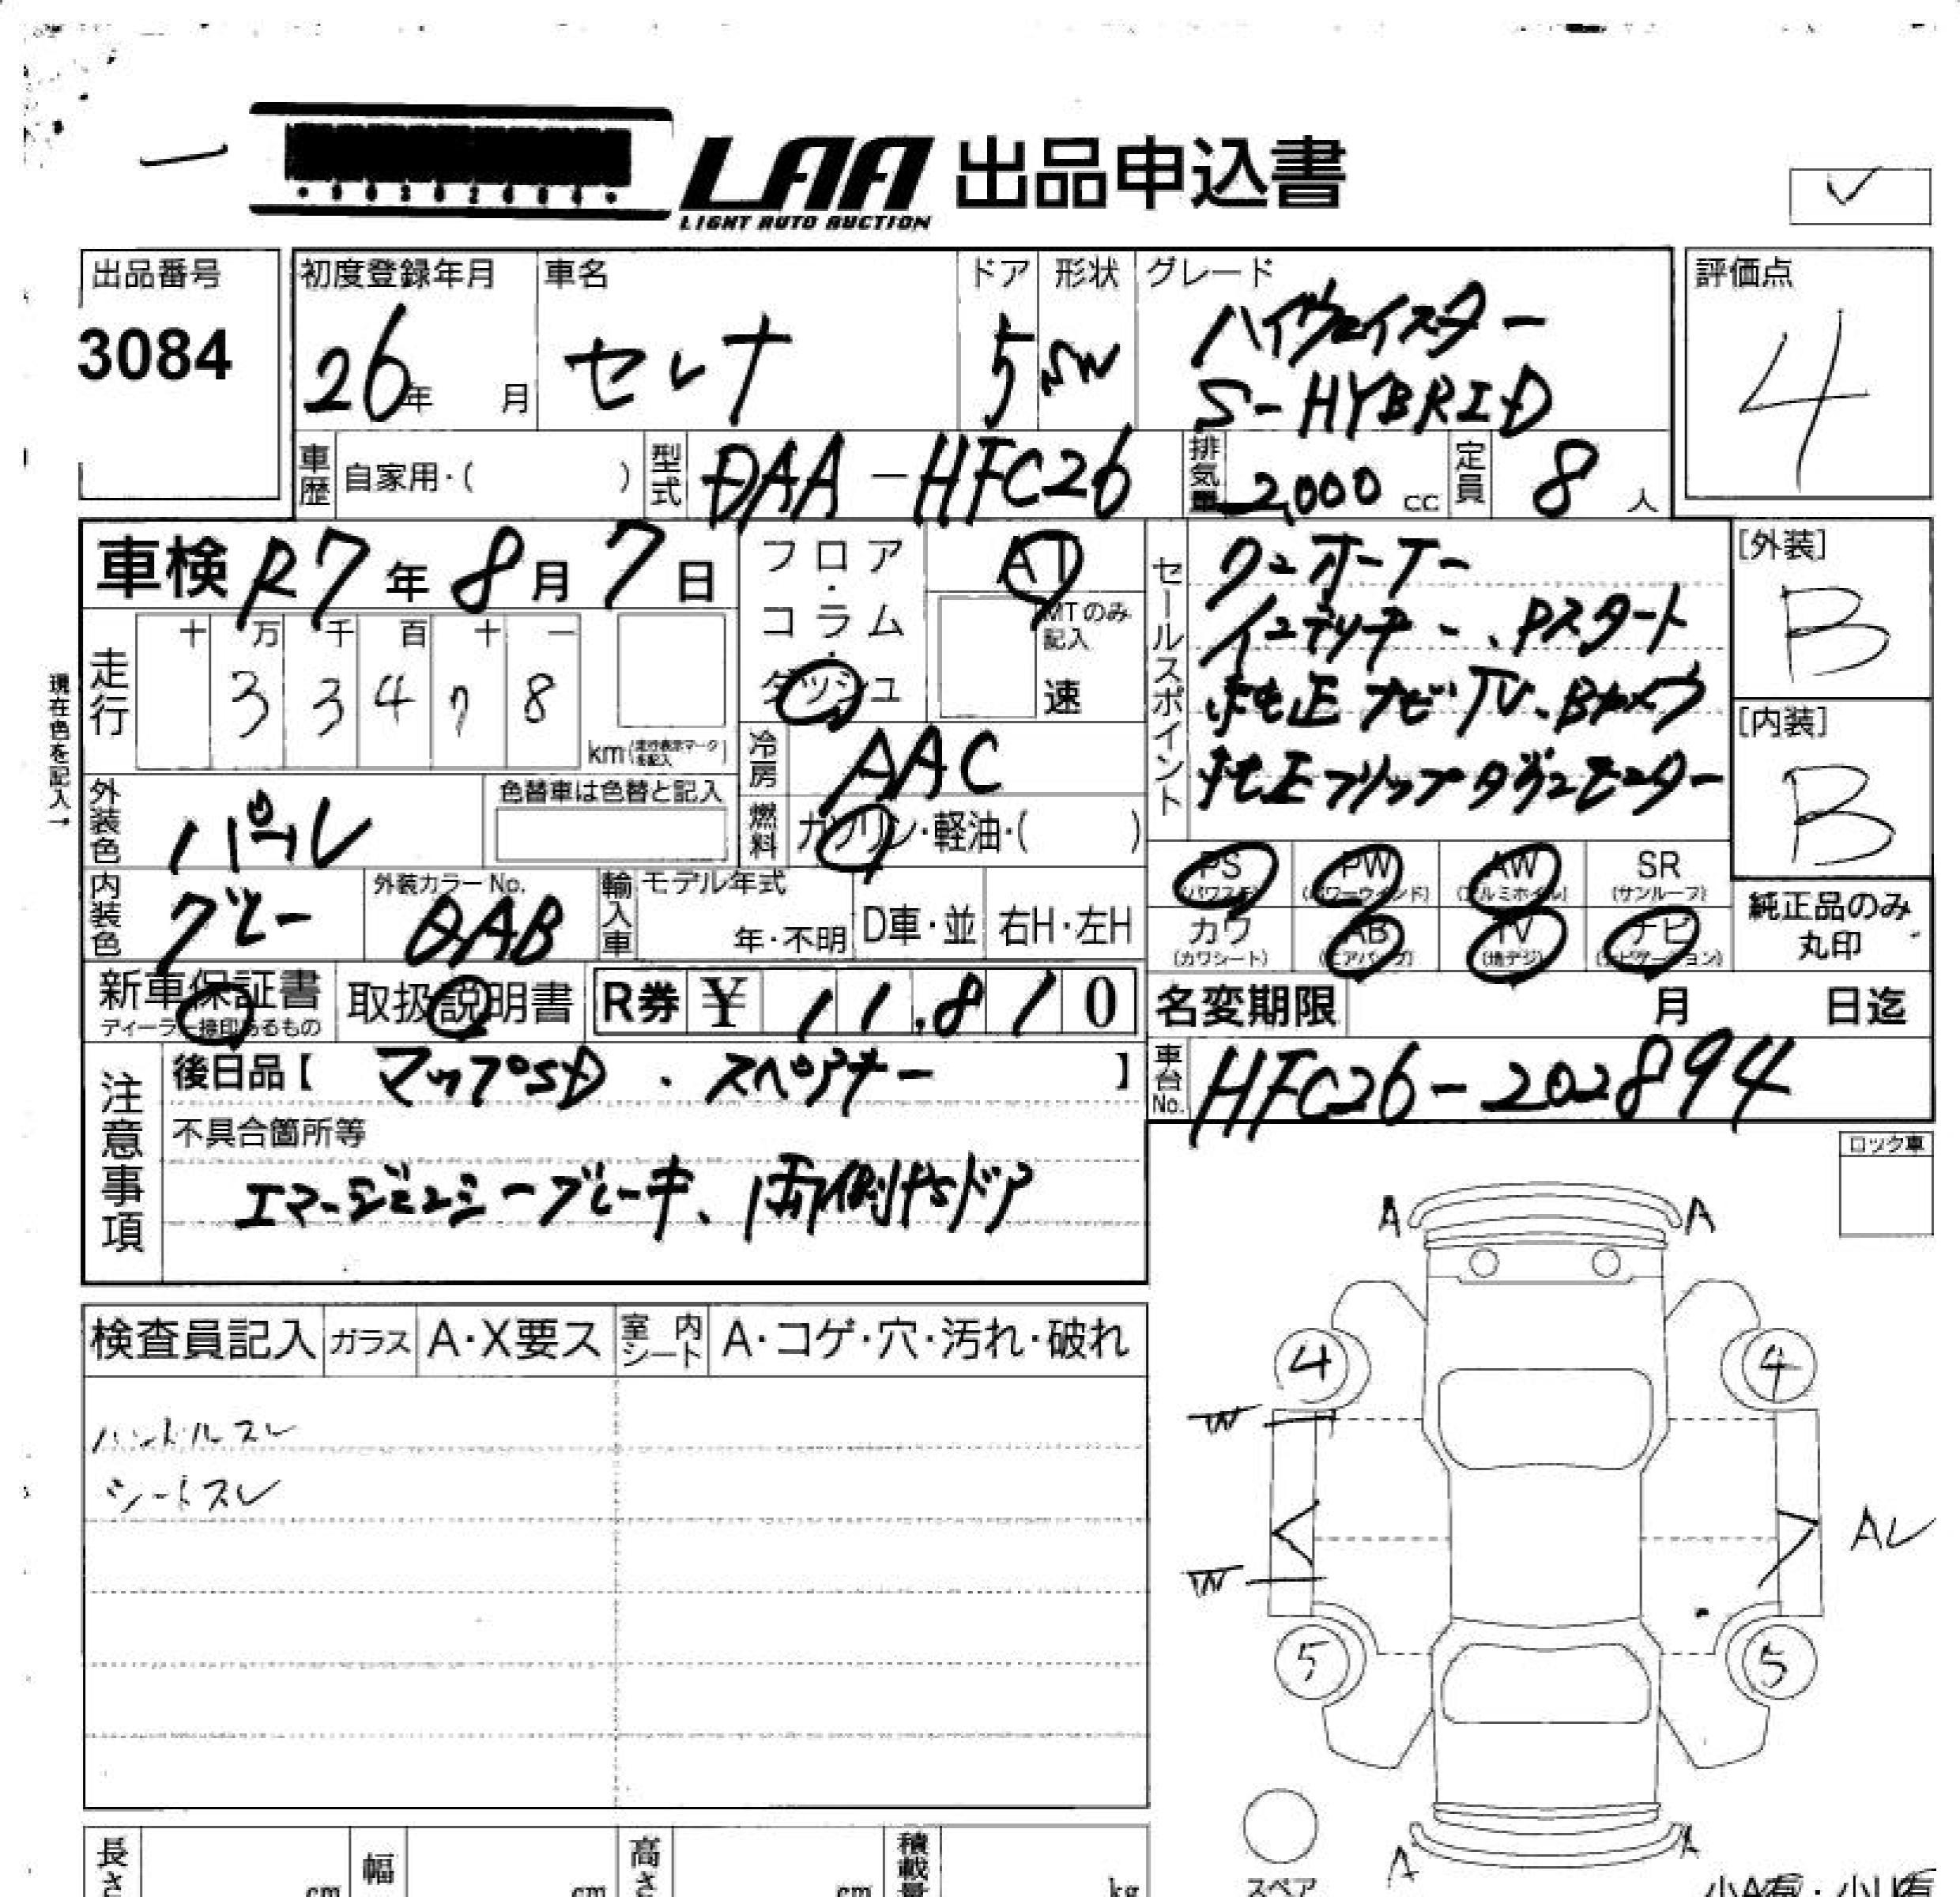 LAA 出品申込書
LIGHT AUTO AUCTION
✓
出品番号
3084
初度登録年月
26年 月
車名
セレナ
ドア
5
形状
SW
グレード
ハイウェイスター
S-HYBRID
評価点
4
車歴 自家用・( )
型式 DAA-HFC26
排気量 2,000 cc
定員 8 人
車検 R7年 8月 7日
走行
十 万 千 百 十 一
3 3 4 7 8
km(走行表示マークを記入)
現在色を記入→
フロア・コラム・ダッシュ
AT
MTのみ記入
速
冷房 AAC
燃料 ガソリン・軽油・( )
外装色 パール
色替車は色替と記入
内装色 グレー
外装カラーNo.
QAB
輸入車 モデル年式
年・不明
D車・並
右H・左H
セールスポイント
ワンオーナー
インテリキー、Pスタート
純正ナビTV、Bカメラ
純正フリップダウンモニター
[外装]
B
[内装]
B
PS (パワステ)
PW (パワーウインド)
AW (アルミホイル)
SR (サンルーフ)
カワ (カワシート)
AB (エアバッグ)
TV (地デジ)
ナビ (ナビゲーション)
純正品のみ丸印
新車保証書
ディーラー捺印あるもの
取扱説明書
R券 ¥ 11,810
名変期限 月 日迄
車台No. HFC26-202894
注意事項
後日品【 マップSD . スペアキー 】
不具合箇所等
エマージェンシーブレーキ、両側PSドア
ロック車
検査員記入
ガラス A・X要ス
室内シート A・コゲ・穴・汚れ・破れ
ハンドルスレ
シートスレ
A A
4 4
W
AU
W
5 5
A X
スペア
長さ cm
幅 cm
高さ cm
積載量 kg
小A有・小U有